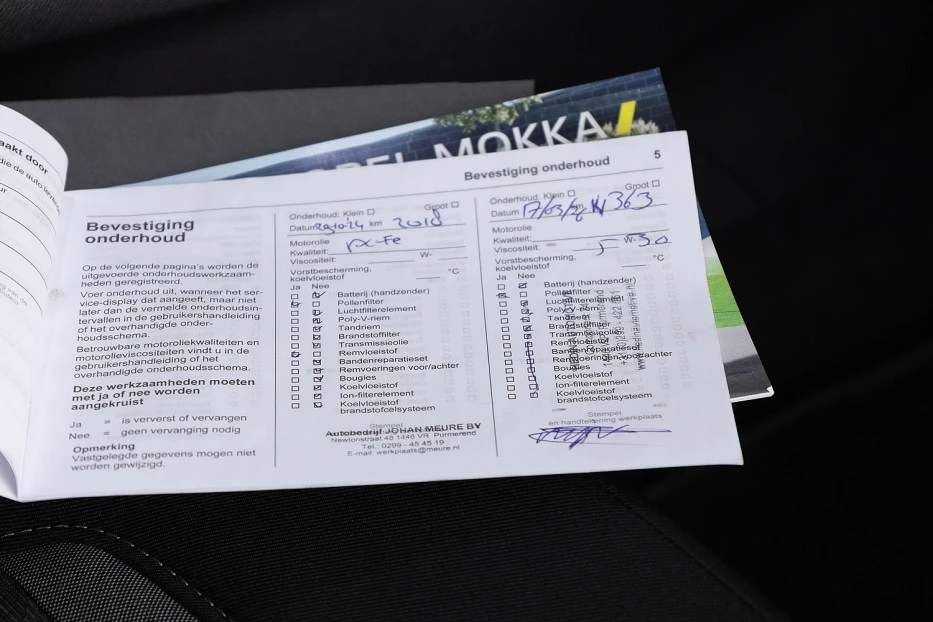 aakt door
OPEL MOKKA
Bevestiging onderhoud 5
Bevestiging
onderhoud
Op de volgende pagina's worden de
uitgevoerde onderhoudswerkzaam-
heden geregistreerd.
Voer onderhoud uit, wanneer het ser-
vice-display dat aangeeft, maar niet
later dan de vermelde onderhoudsin-
tervallen in de gebruikershandleiding
of het overhandigde onder-
houdsschema.
Betrouwbare motoroliekwaliteiten en
motorolieviscositeiten vindt u in de
gebruikershandleiding of het
overhandigde onderhoudsschema.
Deze werkzaamheden moeten
met ja of nee worden
aangekruist
Ja = is ververst of vervangen
Nee = geen vervanging nodig
Opmerking
Vastgelegde gegevens mogen niet
worden gewijzigd.
Onderhoud: Klein Groot
Datum 29-10-24 km
Motorolie
Kwaliteit:
Viscositeit: W-
Vorstbescherming,
koelvloeistof °C
Ja Nee
Batterij (handzender)
Pollenfilter
Luchtfilterelement
Poly-V-riem
Tandriem
Brandstoffilter
Transmissieolie
Remvloeistof
Bandenreparatieset
Remvoeringen voor/achter
Bougies
Koelvloeistof
Ion-filterelement
Koelvloeistof
brandstofcelsysteem
Stempel
Autobedrijf JOHAN MEURE BV
Newtonstraat 48 1446 VR. Purmerend
Tel.: 0299 - 45 45 19
E-mail: werkplaats@meure.nl
Onderhoud: Klein Groot
Datum km
Motorolie
Kwaliteit:
Viscositeit: 5 W-30
Vorstbescherming,
koelvloeistof °C
Ja Nee
Batterij (handzender)
Pollenfilter
Luchtfilterelement
Poly-V-riem
Tandriem
Brandstoffilter
Transmissieolie
Remvloeistof
Bandenreparatieset
Remvoeringen voor/achter
Bougies
Koelvloeistof
Ion-filterelement
Koelvloeistof
brandstofcelsysteem
Stempel
en handtekening werkplaats